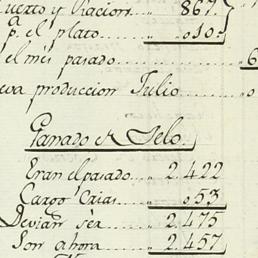 uerto y Racion... 867.
p.a el plato... 010.
el mes pasado... 6
eva produccion Julio... 0
Ganado de Pelo.
Eran el pasado... 2.422
Cargo Crias... 053
Devian ser... 2.475
Son ahora... 2.457